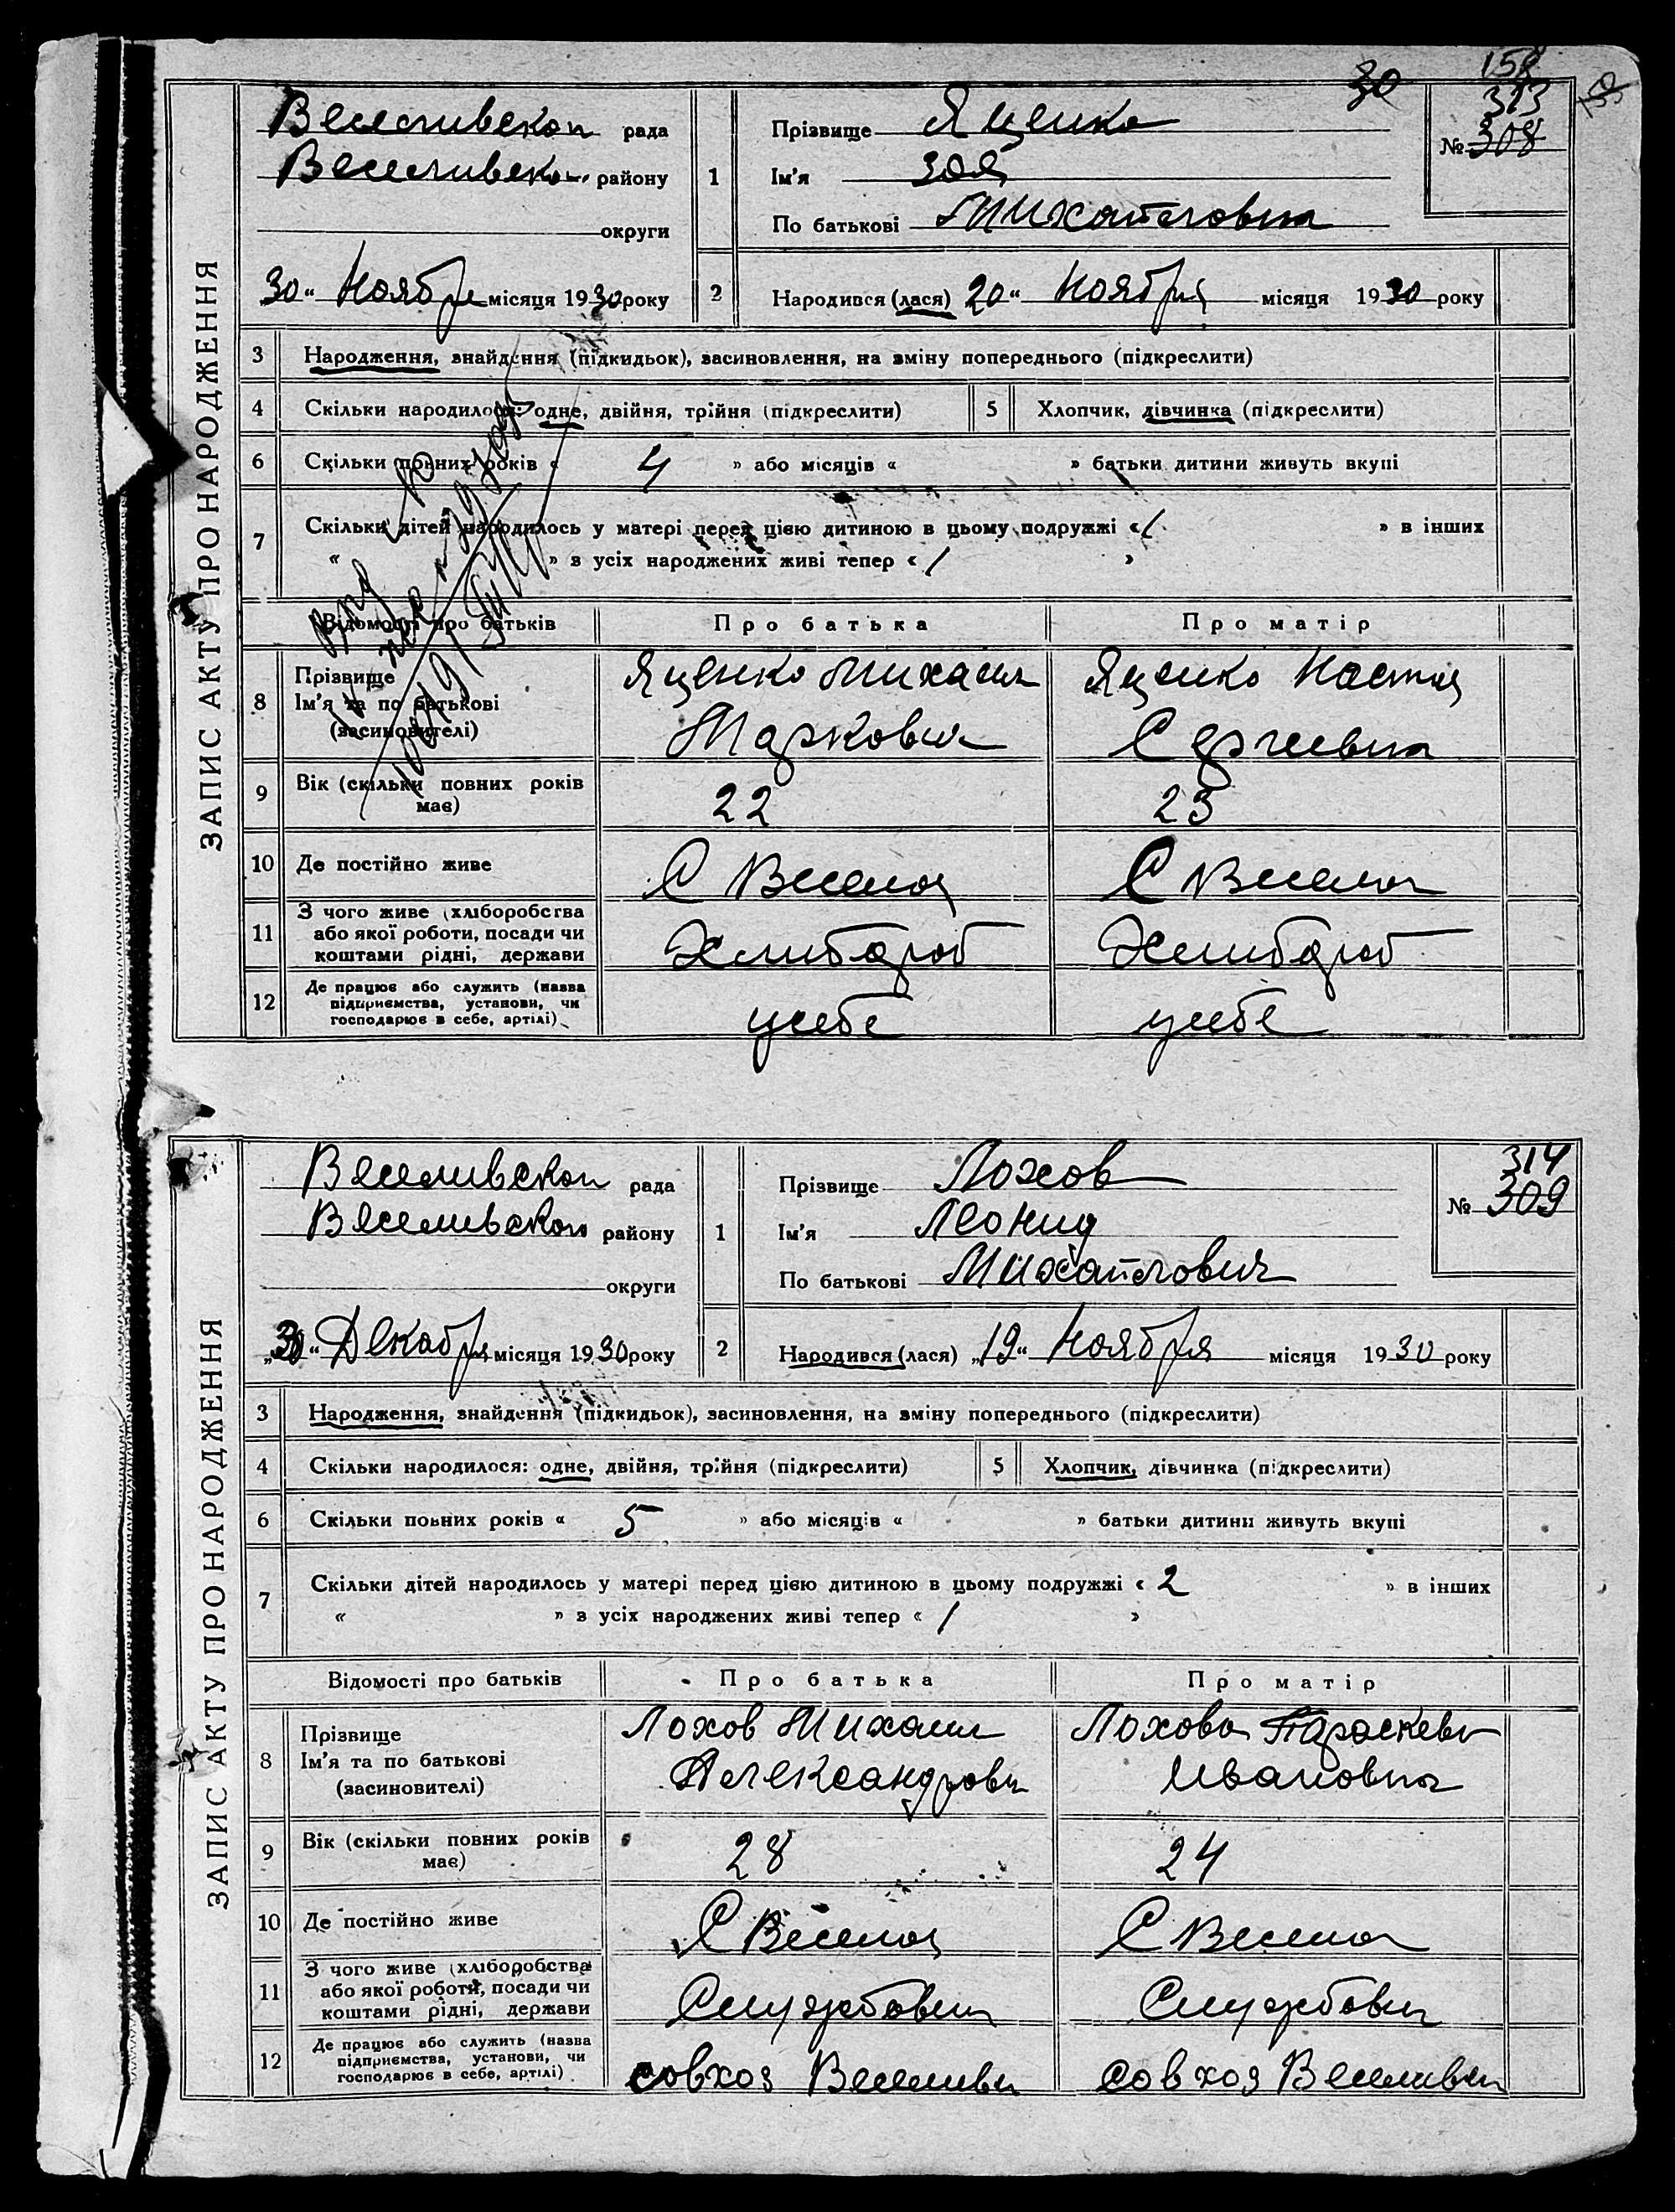 158
30
ЗАПИС АКТУ ПРО НАРОДЖЕННЯ
Веселивской рада
Веселивско.. району
округи
„30“ Ноября місяця 1930 року
1
Прізвище Яценко
Ім'я Зоя
По батькові Михайловна
313
№ 308
2 Народився (лася) 20“ Ноября місяця 1930 року
3 Народження, знайдення (підкидьок), засиновлення, на зміну попереднього (підкреслити)
4 Скільки народилося: одне, двійня, трійня (підкреслити) 5 Хлопчик, дівчинка (підкреслити)
6 Скільки повних років « 4 » або місяців « » батьки дитини живуть вкупі
7 Скільки дітей народилось у матері перед цією дитиною в цьому подружжі « 1 » в інших
« » з усіх народжених живі тепер « 1 »
Відомості про батьків Про батька Про матір
8 Прізвище Ім'я та по батькові (засиновителі)
Яценко Михаил Маркович
Яценко Настя Сергеевна
9 Вік (скільки повних років має) 22 23
10 Де постійно живе С Веселоя С Веселоя
11 З чого живе (хліборобства або якої роботи, посади чи коштами рідні, держави
Хлибороб Хлибороб
12 Де працює або служить (назва підприємства, установи, чи господарює в себе, артілі)
усебе усебе
ЗАПИС АКТУ ПРО НАРОДЖЕННЯ
Веселивской рада
Веселивской району
округи
„30“ Декабря місяця 1930 року
1
Прізвище Лохов
Ім'я Леонид
По батькові Михайлович
314
№ 309
2 Народився (лася) „19“ Ноября місяця 1930 року
3 Народження, знайдення (підкидьок), засиновлення, на зміну попереднього (підкреслити)
4 Скільки народилося: одне, двійня, трійня (підкреслити) 5 Хлопчик, дівчинка (підкреслити)
6 Скільки повних років « 5 » або місяців « » батьки дитини живуть вкупі
7 Скільки дітей народилось у матері перед цією дитиною в цьому подружжі « 2 » в інших
« » з усіх народжених живі тепер « 1 »
Відомості про батьків Про батька Про матір
8 Прізвище Ім'я та по батькові (засиновителі)
Лохов Михаил Александрович
Лохова Параскева Ивановна
9 Вік (скільки повних років має) 28 24
10 Де постійно живе С Веселоя С Веселоя
11 З чого живе (хліборобства або якої роботи, посади чи коштами рідні, держави
Службовец Службовец
12 Де працює або служить (назва підприємства, установи, чи господарює в себе, артілі)
совхоз Веселивск совхоз Веселивск